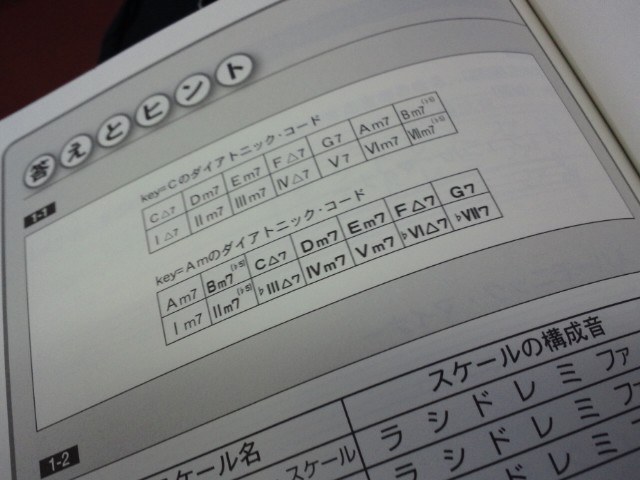 答えとヒント
1-1
key=Cのダイアトニック・コード
C△7 Dm7 Em7 F△7 G7 Am7 Bm7(♭5)
Ⅰ△7 Ⅱm7 Ⅲm7 Ⅳ△7 Ⅴ7 Ⅵm7 Ⅶm7(♭5)
key=Amのダイアトニック・コード
Am7 Bm7(♭5) C△7 Dm7 Em7 F△7 G7
Ⅰm7 Ⅱm7(♭5) ♭Ⅲ△7 Ⅳm7 Ⅴm7 ♭Ⅵ△7 ♭Ⅶ7
1-2
ケール名 スケールの構成音
スケール ラ シ ド レ ミ ファ
ラ シ ド レ ミ